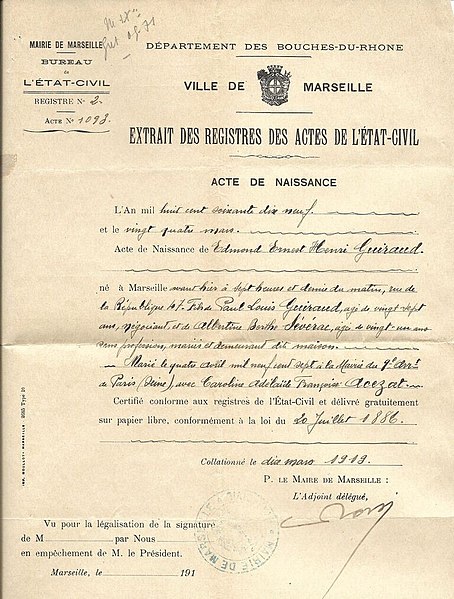 MAIRIE DE MARSEILLE
BUREAU
de
L'ÉTAT-CIVIL
REGISTRE N° 2
ACTE N° 1093
DÉPARTEMENT DES BOUCHES-DU-RHONE
VILLE DE MARSEILLE
EXTRAIT DES REGISTRES DES ACTES DE L'ÉTAT-CIVIL
ACTE DE NAISSANCE
L'An mil huit cent soixante dix neuf
et le vingt quatre mars
Acte de Naissance de Edmond Ernest Henri Guiraud
né à Marseille avant hier à sept heures et demie du matin, rue de
la République 47. Fils de Paul Louis Guiraud, agé de vingt sept
ans, négociant, et de Albertine Berthe Sévérac, agée de vingt un ans
sans profession, mariés et demeurant dite maison.
Marié le quatre avril mil neuf cent sept à la Mairie du 9e Arrt
de Paris (Seine) avec Caroline Adélaïde Françoise Aoezat
Certifié conforme aux registres de l'État-Civil et délivré gratuitement
sur papier libre, conformément à la loi du 20 Juillet 1886.
Collationné le dix mars 1919.
P. LE MAIRE DE MARSEILLE :
L'Adjoint délégué,
Vu pour la légalisation de la signature
de M par Nous
en empêchement de M. le Président.
Marseille, le 191
MAIRIE DE MARSEILLE